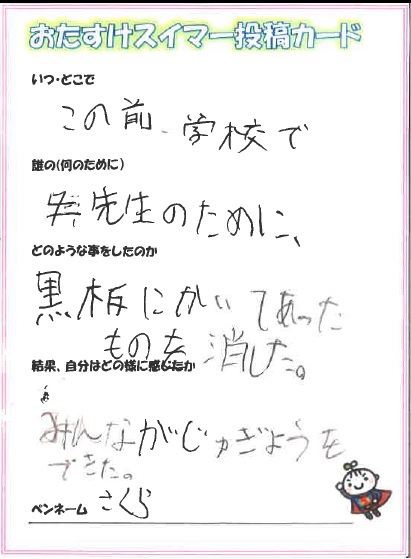 おたすけスイマー投稿カード
いつ・どこで
この前、学校で
誰の(何のために)
先生のために、
どのような事をしたのか
黒板にかいてあった
ものを消した。
結果、自分はどの様に感じたか
みんながじゅぎょうを
できた。
ペンネーム さくら